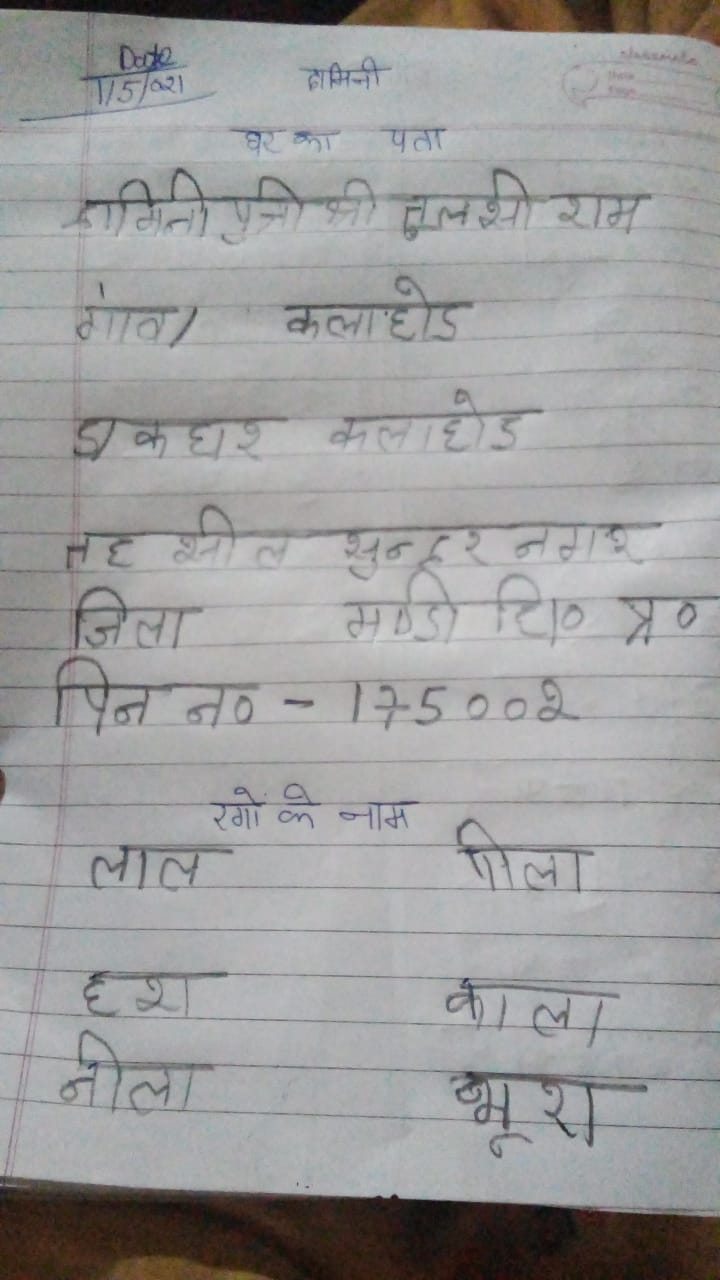 Date
1/5/021 दामिनी
classmate
Date
Page
घर का पता
दामिनी पुत्री श्री तुलसी राम
गांव/ कलाहोड
डाकघर कलाहोड
तहसील सुन्दर नगर
जिला मण्डी हि० प्र०
पिन न० - 175002
रंगों के नाम
लाल पीला
हरा काला
नीला भूरा